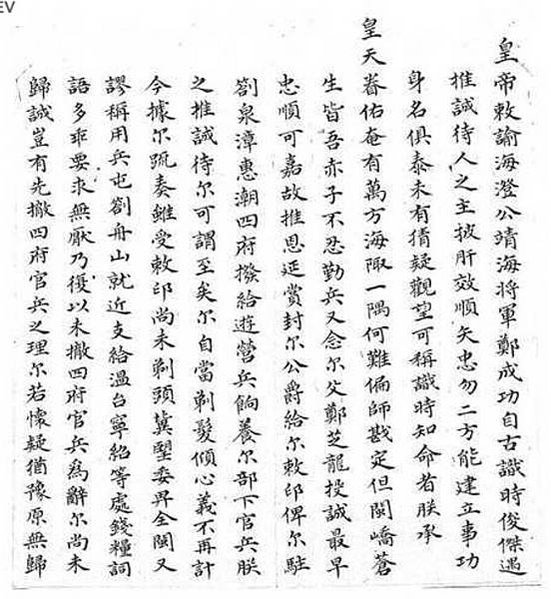 EV
皇帝敕諭海澄公靖海將軍鄭成功自古識時俊傑遇
推誠待人之主披肝效順矢忠勿二方能建立事功
身名俱泰未有猜疑觀望可稱識時知命者朕承
皇天眷佑奄有萬方海陬一隅何難偏師戡定但閩嶠蒼
生皆吾赤子不忍勤兵又念尔父鄭芝龍投誠最早
忠順可嘉故推恩延賞封尔公爵給尔敕印俾尔駐
劄泉漳惠潮四府撥給遊營兵餉養尔部下官兵朕
之推誠待尔可謂至矣尔自當剃髮傾心義不再計
今據尔疏奏雖受敕印尚未剃頭冀望委畀全閩又
謬稱用兵屯劄舟山就近支給溫台寧紹等處錢糧詞
語多乖要求無厭乃復以未撤四府官兵為辭尔尚未
歸誠豈有先撤四府官兵之理尔若懷疑猶豫原無歸